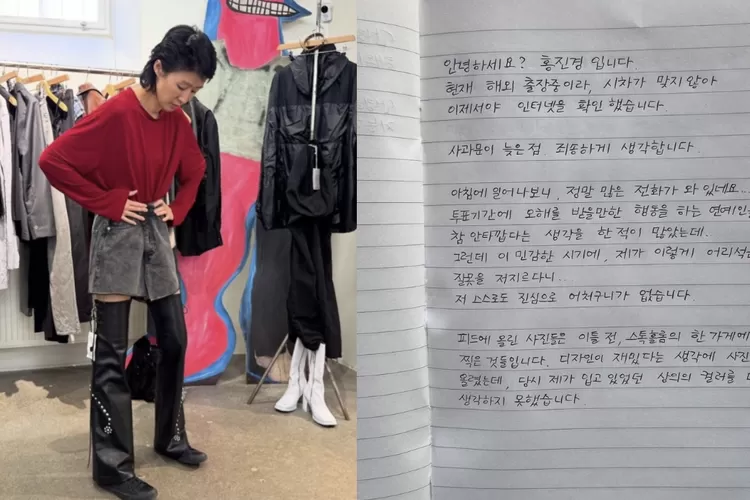 안녕하세요? 홍진경 입니다
현재 해외 출장중이라, 시차가 맞지않아
이제서야 인터넷을 확인 했습니다.
사과문이 늦은점 죄송하게 생각합니다.
아침에 일어나보니, 정말 많은 전화가 와 있네요...
투표기간에 오해를 받을만한 행동을 하는 연예인을
참 안타깝다는 생각을 한 적이 많았는데.
그런데 이 민감한 시기에, 제가 이렇게 어리석은
잘못을 저지르다니...
저 스스로도 진심으로 어처구니가 없습니다.
피드에 올린 사진들은 이틀 전, 스톡홀름의 한 가게에
찍은 것들입니다. 디자인이 재밌다는 생각에 사진
올렸는데, 당시 제가 입고 있었던 상의의 컬러를
생각하지 못했습니다.